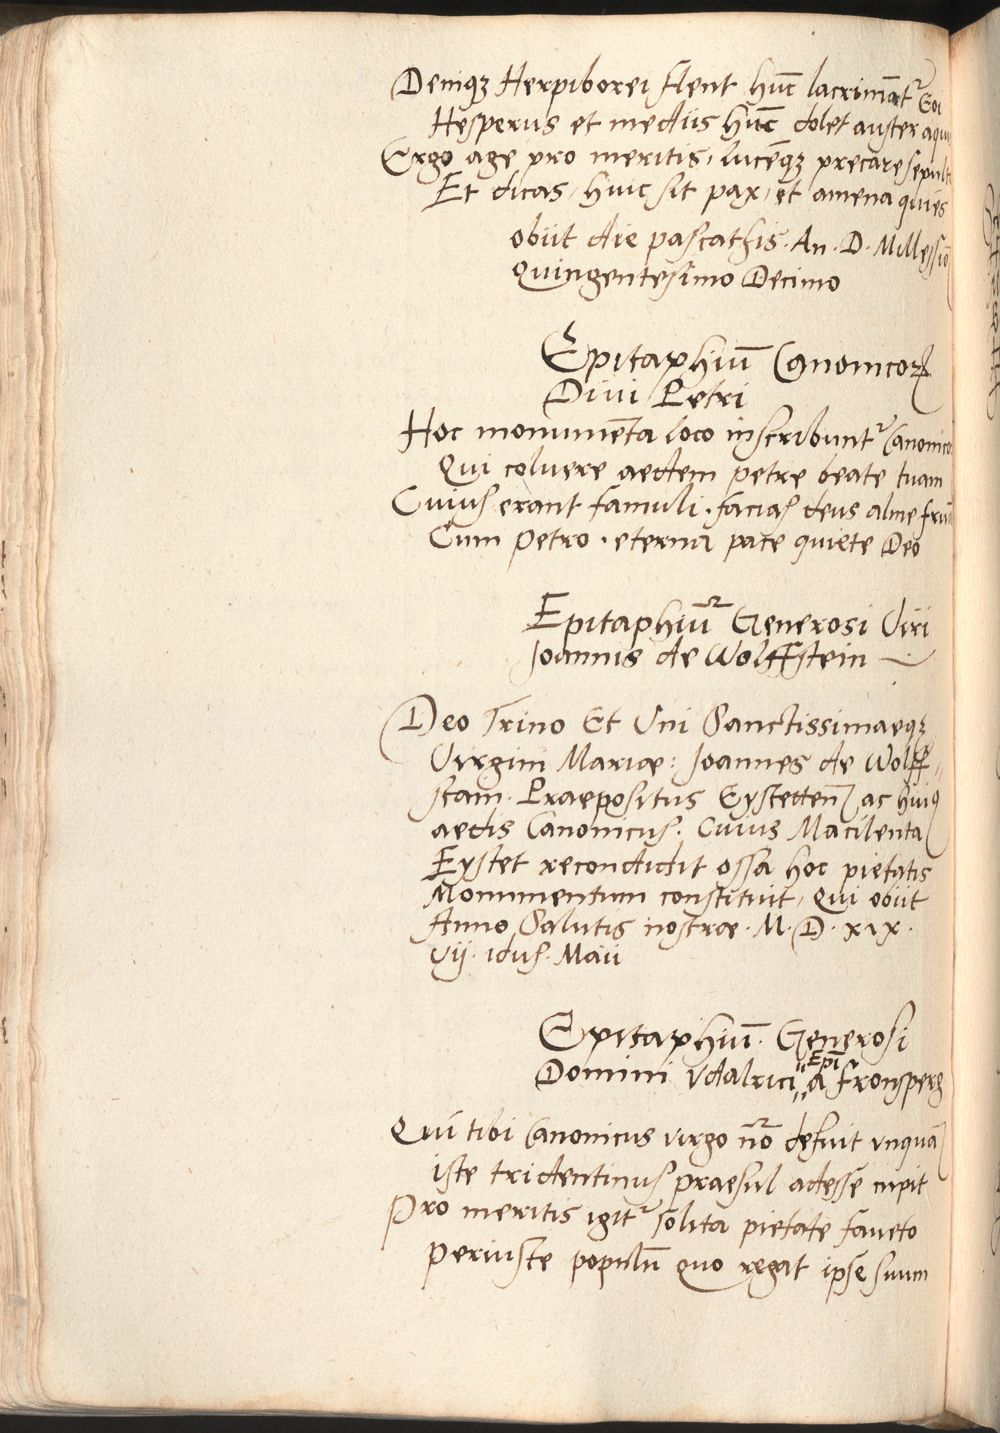 Deniq̃ Herpiborei flent hũc lacrimãt᷑ Eoi
Hesperus et mediis hũc dolet auster
Ergo age pro meritis, lucẽq̃ precare
Et dicas, huic sit pax, et amena quies
obiit die pascathis. An. D. Millessiō
Quingentesimo Decimo
Epitaphiū Canonicoꝝ
Diui Petri
Hoc monumẽta loco inscribunt᷑
Qui coluere aedem petre beate tuam
Cuius erant famuli. facias deus alme
Cum Petro. eterna pace quiete Deo
Epitaphiū Generosi Viri
Joannis de Wolffstein
Deo Trino Et Vni Sanctissimaeq̃
Virgini Mariæ: Joannes de Wolff„
stain. Praepositus Eystetteñ ac huiꝰ
aedis Canonicus. Cuius Macilenta
Eystet recondidit ossa hoc pietatis
Monumentum constituit, Qui obiit
Anno Salutis nostræ. M. D. xix.
Vij. idus. Maii
Epitaphiū. Generosi
Epī
Domini Vdalrici „ a Fronsperg
Qui tibi Canonicus virgo nō defuit vnquā
iste tridentinus praesul adesse cupit
Pro meritis igit᷑ solita pietate faueto
Periuste populū quo regat ipse suum